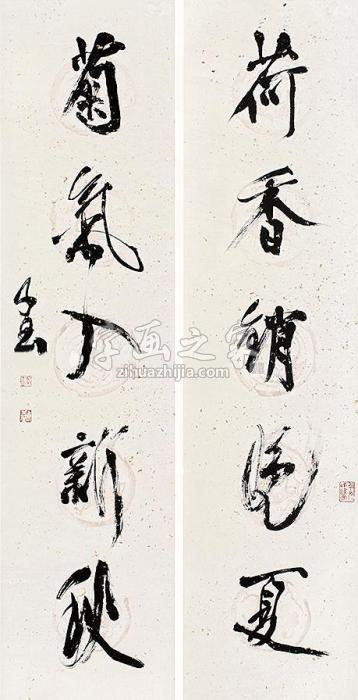 荷香銷晚夏
菊氣入新秋
字画之家
zihuazhijia.com